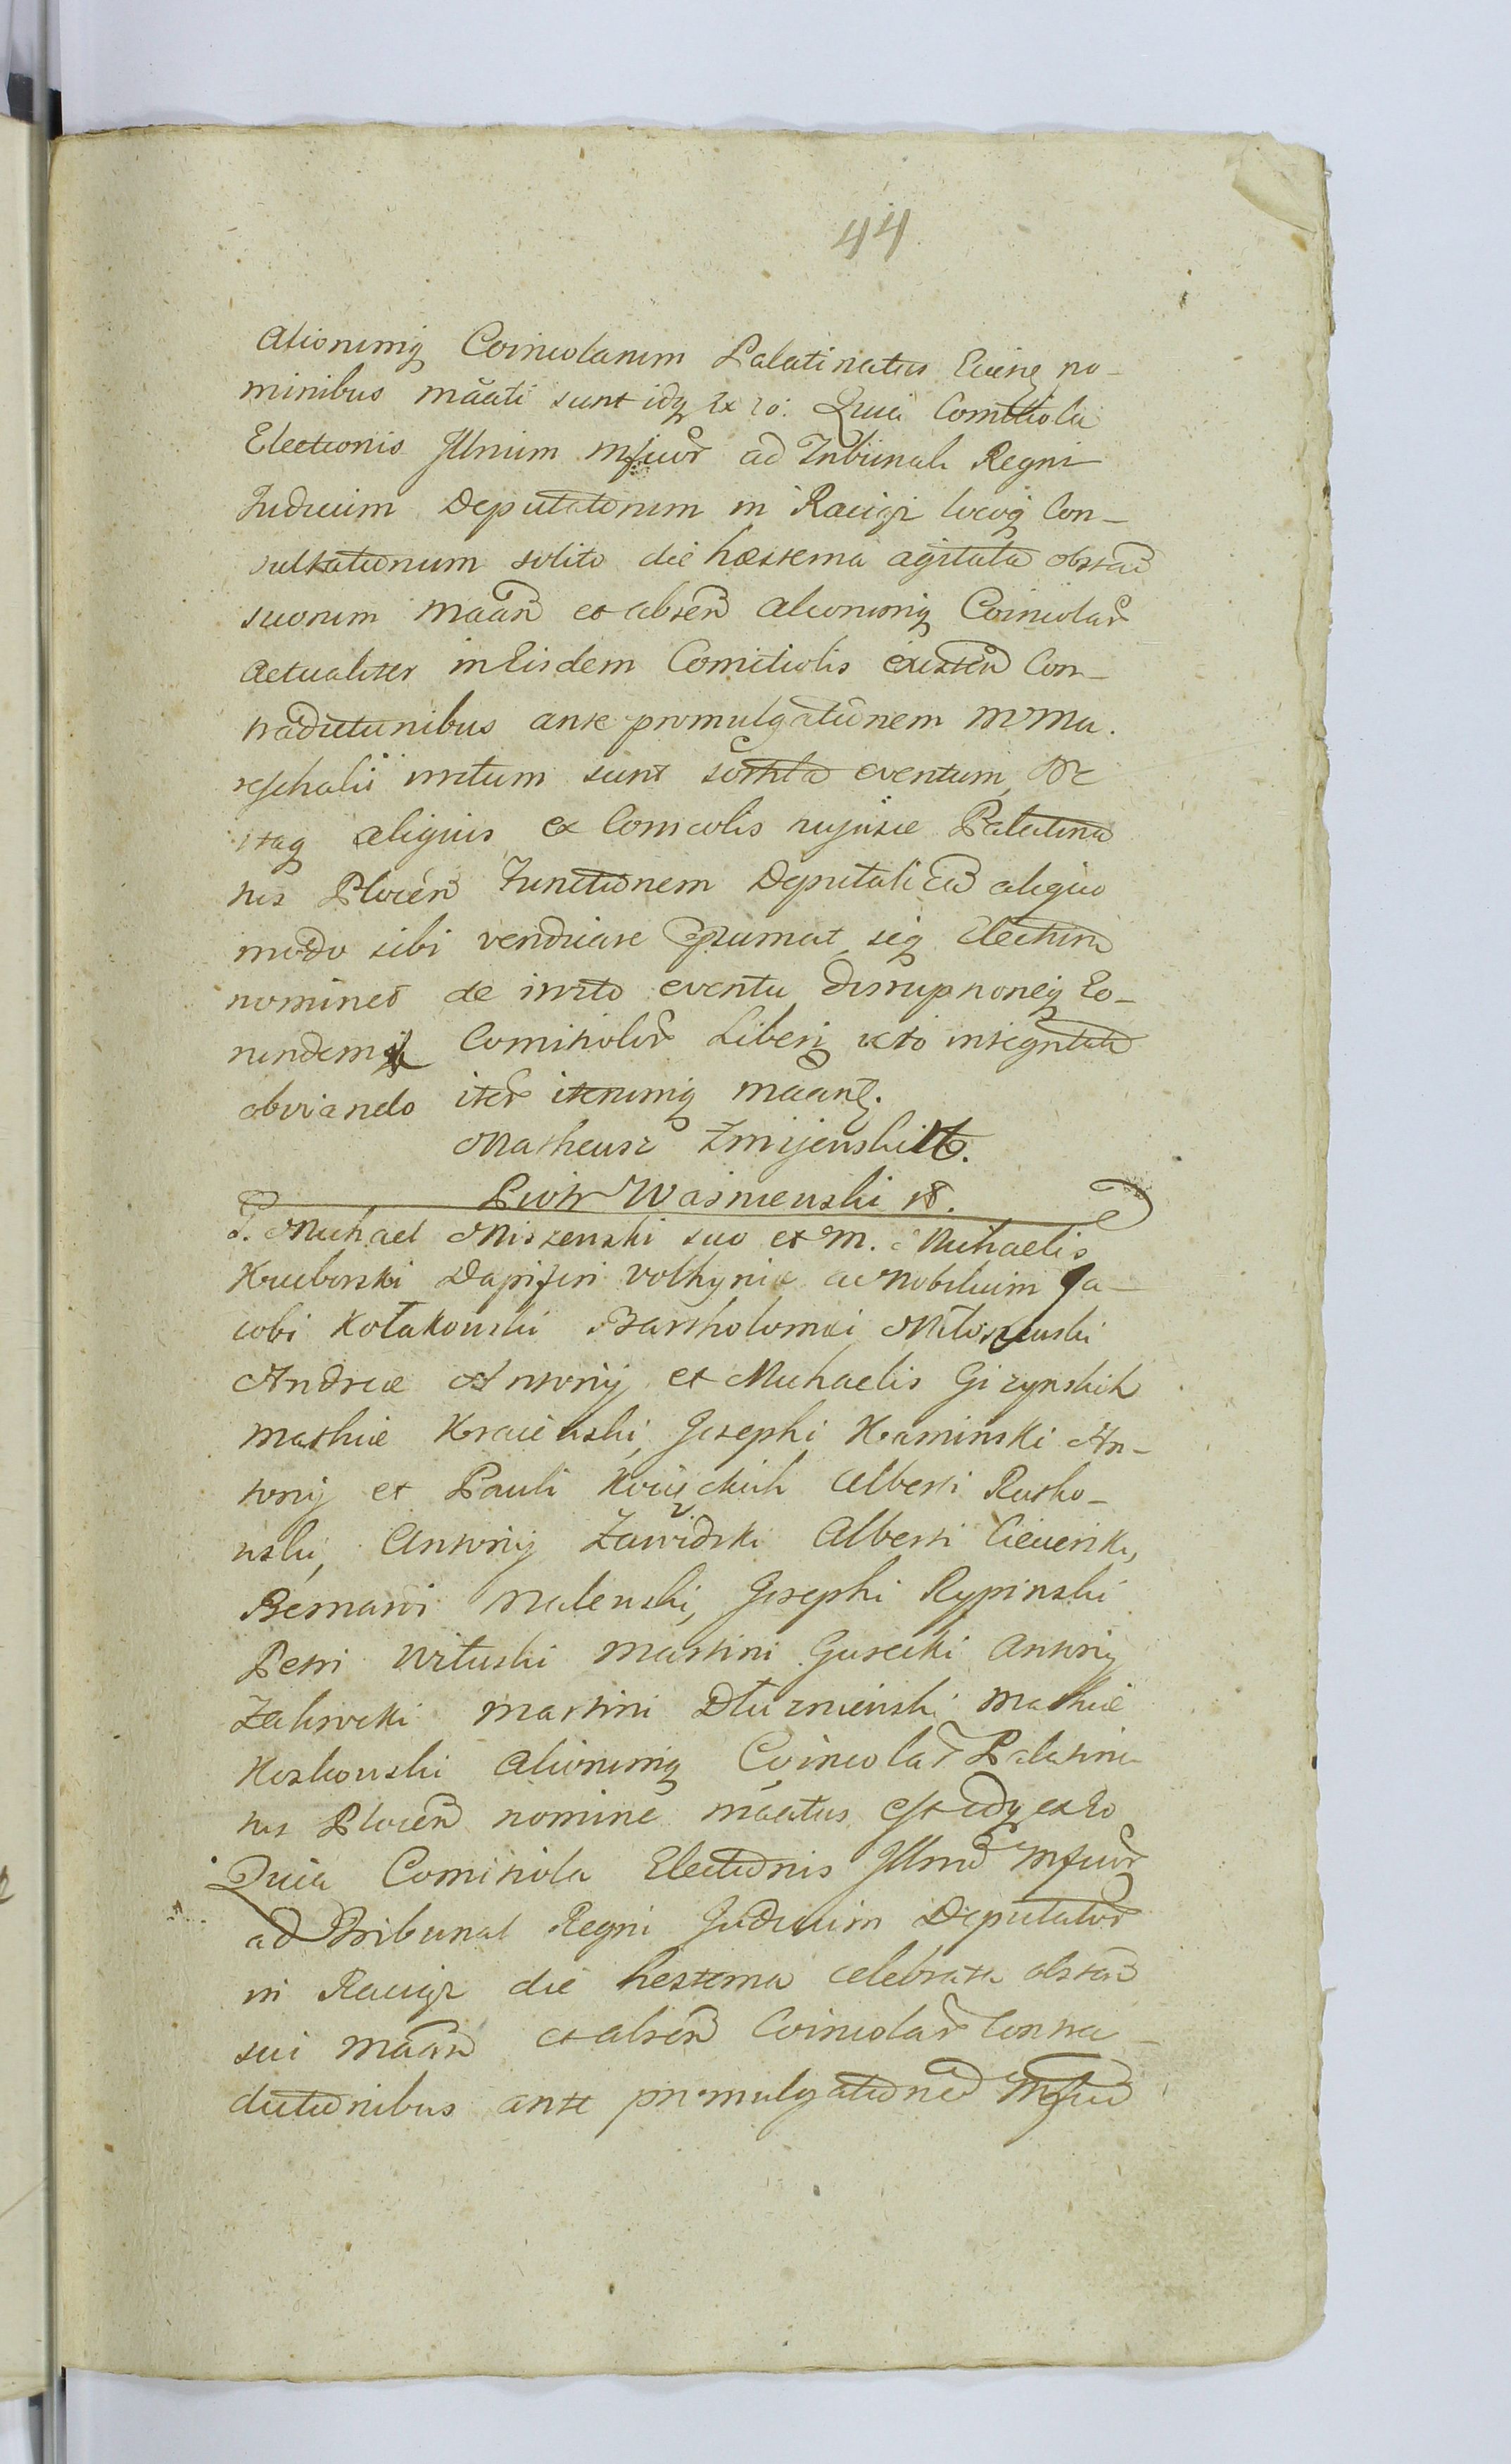 44
Alionumq Coincolarum Palatinatus Eiusq no-
minibus māati sunt idq Ex eo: Quia Comitiola
Electionis Illrium Mfcior ad Tribunale Regni
Judicium Deputatorum in Raciąz locoq Con-
sultationum solito die hæsterna agitata obstan
suorum Māan et absen Alionumq Coincolar
Actualiter in Eisdem Comitiolis existen Con-
tradictionibus ante promulgationem M Ma.
reschalii irritum sunt sortita eventum, Ne
itaq aliquis ex Comcolis Palatina
tus Plocen Functionem Deputali aliquo
modo sibi vendicare psumat, seq Electum
nominet de irrito eventu disruptioneq Eo-
rundem Comitiolor Liberi veto integritate
obviando iter iterumq māantq.
Matheusz Zmijewski
Piotr Wasniewski
P. Michael Miszewski suo et M. Michaelis
Karborski Dapiferi Volhyniæ ac Nobilium Ja-
cobi Kołakowski Bartholomæi Miłoszewski
Andreæ Antonij et Michaelis Giżynskich
Mathiæ Kraiewski, Josephi Kaminski An-
tonij et Pauli Alberti Rutko-
wski, Antonij Zawidzki Alberti Ciecierski,
Bernardi Malewski, Josephi Rypinski
Petri Wituski Martini Gurecki Antonij
Zaliwski Martini Dłuzniewski Mathiæ
Koskowski Alionumq Coincolar Palatina
tus Plocen nomine māatus est idq ex eo
Quia Comitiola Electionis Illrm Mfcior
ad Tribunal Regni Judicium Deputator
in Raciąz die hesterna celebrata obstan
sui Māan et absen Coincolar Contra-
dictionibus ante promulgatione Mfci